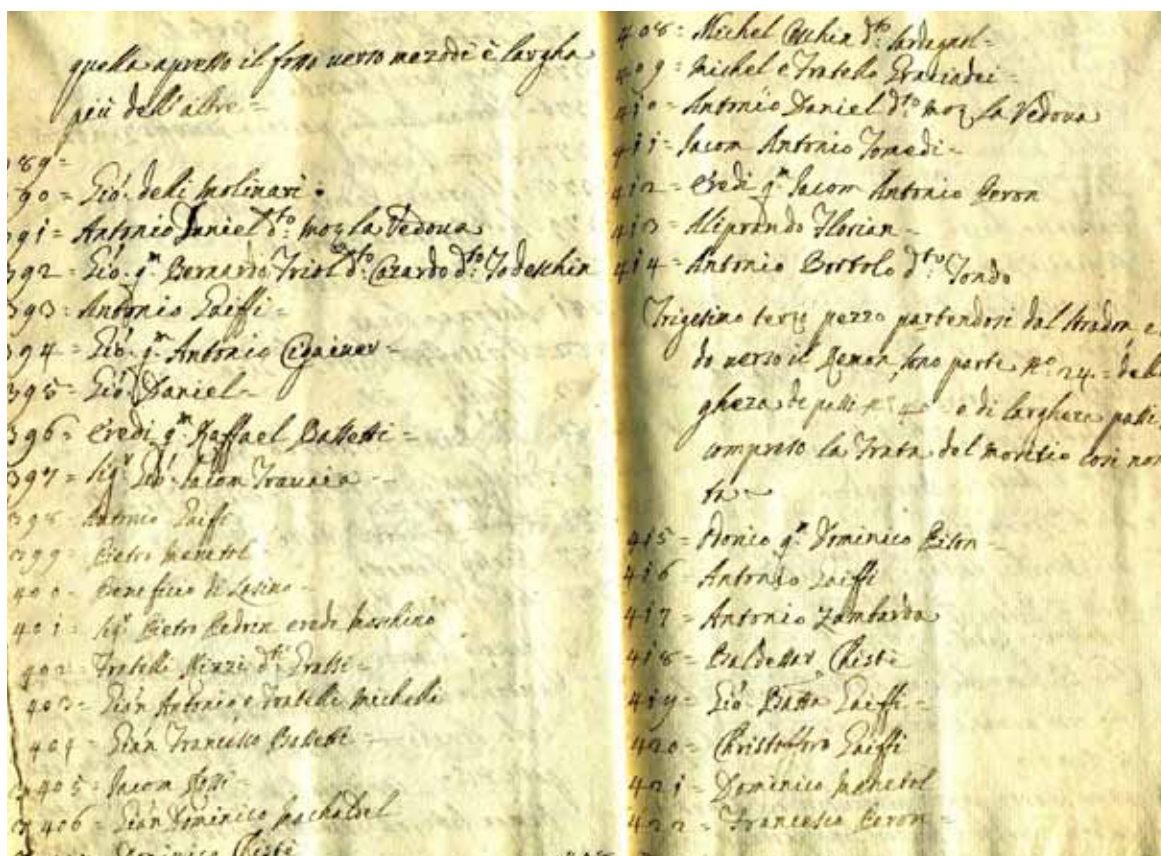 quella apresso il fosso verso mezodi è largha
più dell'altre =
389 =
390 = Giò. delli Molinari.
391 = Antonio Daniel d.to moz la Vedova
392 = Giò. q.m Bernardo Triol d.to Cazardo d.to Todeschin
393 = Antonio Gaiffi =
394 = Giò. q.m Antonio Cigainer =
395 = Giò. Daniel =
396 = Eredi q.m Raffael Bassetti =
397 = Sig.r Giò. Jacom Travaia =
398 = Antonio Gaiffi
399 = Pietro Manetol =
400 = Beneficio di Lasino =
401 = Sig.r Pietro Pedrin erede
402 = Fratelli d.ti Grassi =
403 = Gian Antonio e Fratelli Michelli
404 = Gian Francesco Bassetti =
405 = Jacom
406 = Gian Dominico
Dominico Chistè
408 = Michel d.to =
409 = Michel e Fratello Graciadei =
410 = Antonio Daniel d.to moz la Vedova
411 = Jacom Antonio Tomedi =
412 = Eredi q.m Jacom Antonio Peron
413 = Aliprando Florian =
414 = Antonio Bortolo d.to Tondo
Trigesimo terzo pezzo partendosi dal Stradon e
do verso il Remon, sono parte n.o 24 = dell
gheza di passi n.o 40 = e di largheza passi
compreso la Trata del cosi non
ta =
415 = q.m Dominico Piton =
416 = Antonio Gaiffi
417 = Antonio Zambarda
418 = Baldessar Chistè
419 = Giò. Batta Gaiffi =
420 = Christofforo Gaiffi
421 = Dominico Manetol
422 = Francesco Peron =